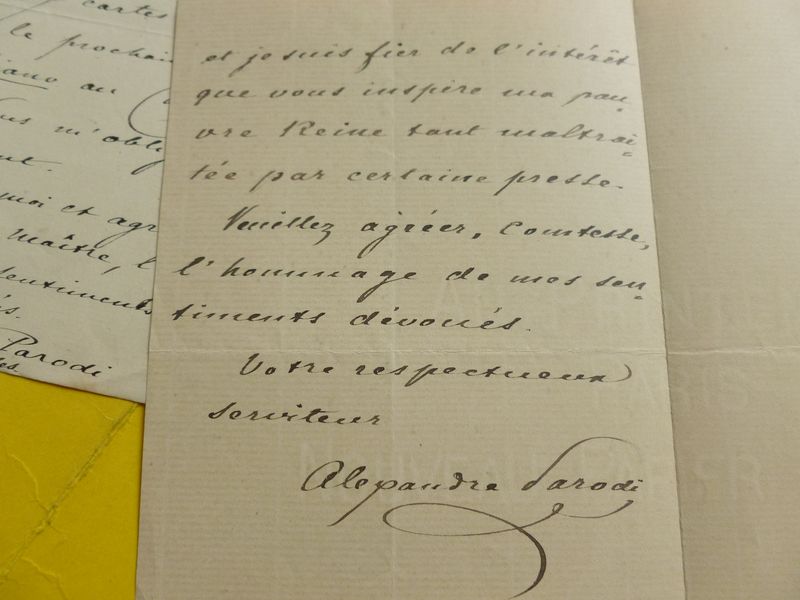 cartes
le prochain
au
m'oblig
moi et agr
maître, l
sentiments
Parodi
et je suis fier de l'intérêt
que vous inspire ma pau-
vre Reine tant maltrai-
tée par certaine presse.
Veuillez agréer, Comtesse,
l'hommage de mes sen-
timents dévoués.
Votre respectueux
serviteur
Alexandre Parodi